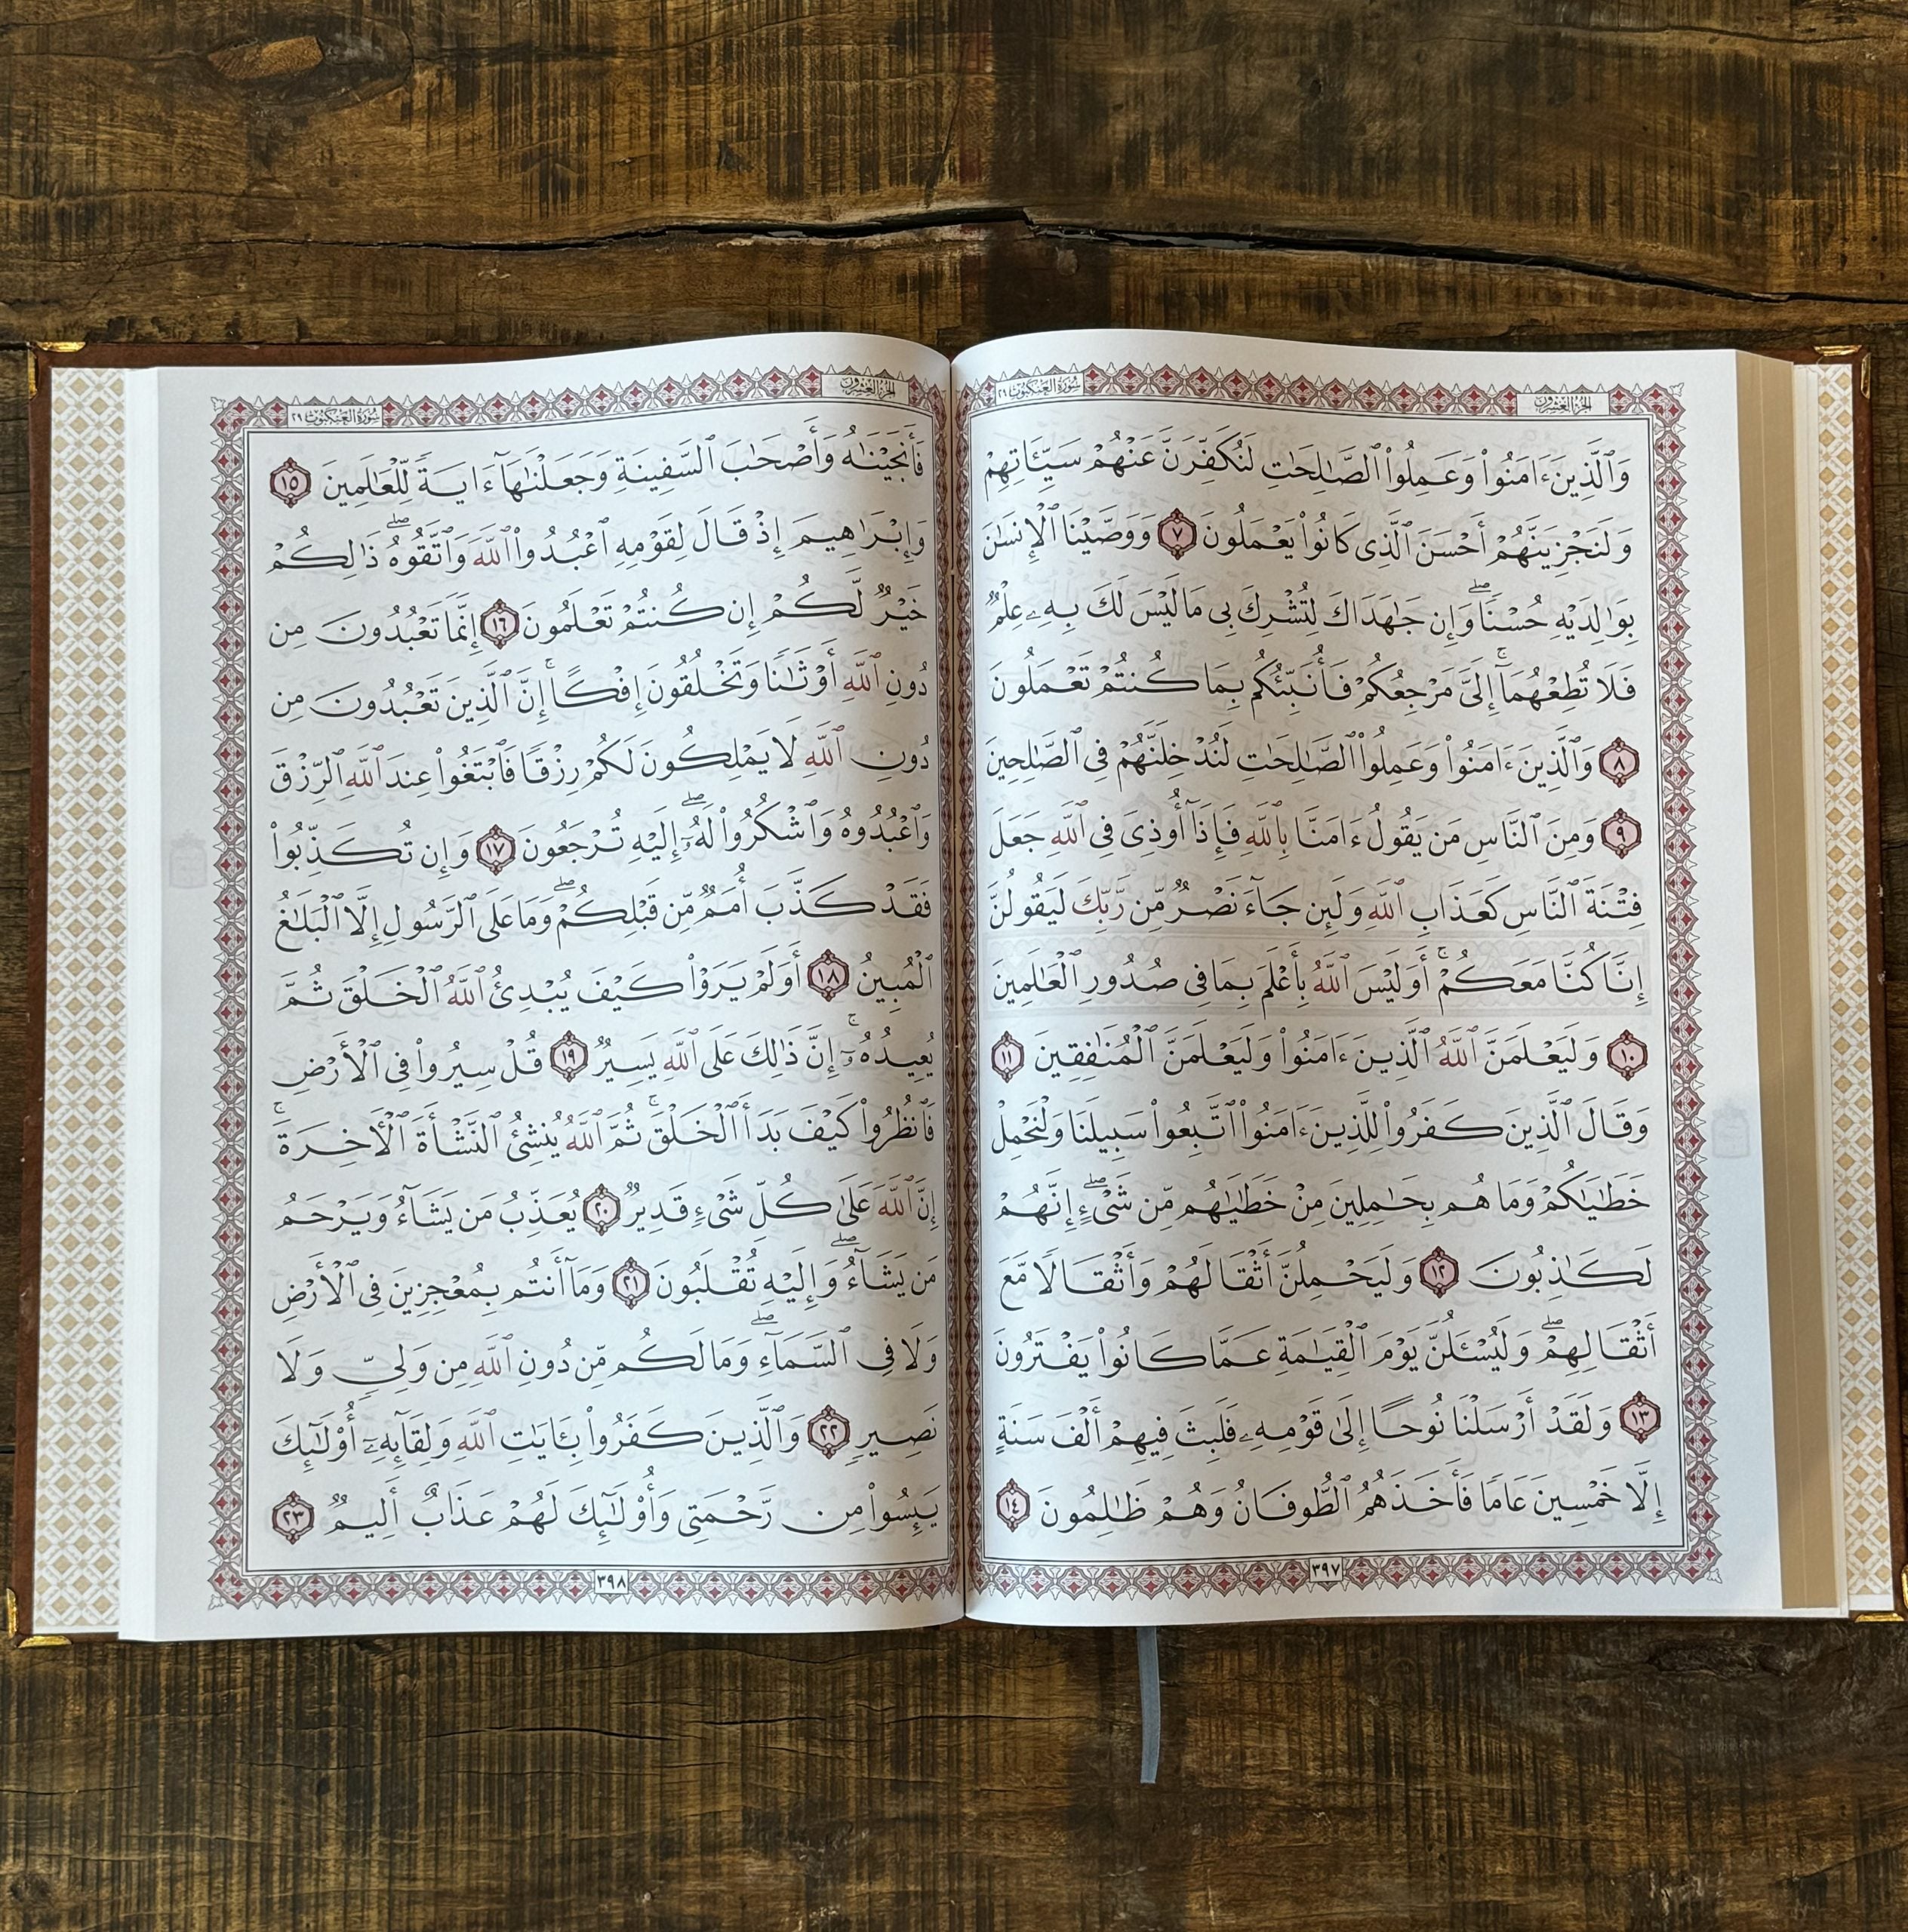 الجزء العشرون
سورة العنكبوت ٢٩
وَٱلَّذِينَ ءَامَنُوا۟ وَعَمِلُوا۟ ٱلصَّٰلِحَٰتِ لَنُكَفِّرَنَّ عَنْهُمْ سَيِّـَٔاتِهِمْ
وَلَنَجْزِيَنَّهُمْ أَحْسَنَ ٱلَّذِى كَانُوا۟ يَعْمَلُونَ ٧ وَوَصَّيْنَا ٱلْإِنسَٰنَ
بِوَٰلِدَيْهِ حُسْنًا ۖ وَإِن جَٰهَدَاكَ لِتُشْرِكَ بِى مَا لَيْسَ لَكَ بِهِۦ عِلْمٌ
فَلَا تُطِعْهُمَآ ۚ إِلَىَّ مَرْجِعُكُمْ فَأُنَبِّئُكُم بِمَا كُنتُمْ تَعْمَلُونَ
٨ وَٱلَّذِينَ ءَامَنُوا۟ وَعَمِلُوا۟ ٱلصَّٰلِحَٰتِ لَنُدْخِلَنَّهُمْ فِى ٱلصَّٰلِحِينَ
٩ وَمِنَ ٱلنَّاسِ مَن يَقُولُ ءَامَنَّا بِٱللَّهِ فَإِذَآ أُوذِىَ فِى ٱللَّهِ جَعَلَ
فِتْنَةَ ٱلنَّاسِ كَعَذَابِ ٱللَّهِ وَلَئِن جَآءَ نَصْرٌ مِّن رَّبِّكَ لَيَقُولُنَّ
إِنَّا كُنَّا مَعَكُمْ ۚ أَوَلَيْسَ ٱللَّهُ بِأَعْلَمَ بِمَا فِى صُدُورِ ٱلْعَٰلَمِينَ
١٠ وَلَيَعْلَمَنَّ ٱللَّهُ ٱلَّذِينَ ءَامَنُوا۟ وَلَيَعْلَمَنَّ ٱلْمُنَٰفِقِينَ ١١
وَقَالَ ٱلَّذِينَ كَفَرُوا۟ لِلَّذِينَ ءَامَنُوا۟ ٱتَّبِعُوا۟ سَبِيلَنَا وَلْنَحْمِلْ
خَطَٰيَٰكُمْ وَمَا هُم بِحَٰمِلِينَ مِنْ خَطَٰيَٰهُم مِّن شَىْءٍ ۖ إِنَّهُمْ
لَكَٰذِبُونَ ١٢ وَلَيَحْمِلُنَّ أَثْقَالَهُمْ وَأَثْقَالًا مَّعَ
أَثْقَالِهِمْ ۖ وَلَيُسْـَٔلُنَّ يَوْمَ ٱلْقِيَٰمَةِ عَمَّا كَانُوا۟ يَفْتَرُونَ
١٣ وَلَقَدْ أَرْسَلْنَا نُوحًا إِلَىٰ قَوْمِهِۦ فَلَبِثَ فِيهِمْ أَلْفَ سَنَةٍ
إِلَّا خَمْسِينَ عَامًا فَأَخَذَهُمُ ٱلطُّوفَانُ وَهُمْ ظَٰلِمُونَ ١٤
٣٩٧
الجزء العشرون
سورة العنكبوت ٢٩
فَأَنجَيْنَٰهُ وَأَصْحَٰبَ ٱلسَّفِينَةِ وَجَعَلْنَٰهَآ ءَايَةً لِّلْعَٰلَمِينَ ١٥
وَإِبْرَٰهِيمَ إِذْ قَالَ لِقَوْمِهِ ٱعْبُدُوا۟ ٱللَّهَ وَٱتَّقُوهُ ۖ ذَٰلِكُمْ
خَيْرٌ لَّكُمْ إِن كُنتُمْ تَعْلَمُونَ ١٦ إِنَّمَا تَعْبُدُونَ مِن
دُونِ ٱللَّهِ أَوْثَٰنًا وَتَخْلُقُونَ إِفْكًا ۚ إِنَّ ٱلَّذِينَ تَعْبُدُونَ مِن
دُونِ ٱللَّهِ لَا يَمْلِكُونَ لَكُمْ رِزْقًا فَٱبْتَغُوا۟ عِندَ ٱللَّهِ ٱلرِّزْقَ
وَٱعْبُدُوهُ وَٱشْكُرُوا۟ لَهُۥٓ ۖ إِلَيْهِ تُرْجَعُونَ ١٧ وَإِن تُكَذِّبُوا۟
فَقَدْ كَذَّبَ أُمَمٌ مِّن قَبْلِكُمْ ۖ وَمَا عَلَى ٱلرَّسُولِ إِلَّا ٱلْبَلَٰغُ
ٱلْمُبِينُ ١٨ أَوَلَمْ يَرَوْا۟ كَيْفَ يُبْدِئُ ٱللَّهُ ٱلْخَلْقَ ثُمَّ
يُعِيدُهُۥٓ ۚ إِنَّ ذَٰلِكَ عَلَى ٱللَّهِ يَسِيرٌ ١٩ قُلْ سِيرُوا۟ فِى ٱلْأَرْضِ
فَٱنظُرُوا۟ كَيْفَ بَدَأَ ٱلْخَلْقَ ۚ ثُمَّ ٱللَّهُ يُنشِئُ ٱلنَّشْأَةَ ٱلْءَاخِرَةَ ۚ
إِنَّ ٱللَّهَ عَلَىٰ كُلِّ شَىْءٍ قَدِيرٌ ٢٠ يُعَذِّبُ مَن يَشَآءُ وَيَرْحَمُ
مَن يَشَآءُ ۖ وَإِلَيْهِ تُقْلَبُونَ ٢١ وَمَآ أَنتُم بِمُعْجِزِينَ فِى ٱلْأَرْضِ
وَلَا فِى ٱلسَّمَآءِ ۖ وَمَا لَكُم مِّن دُونِ ٱللَّهِ مِن وَلِىٍّ وَلَا
نَصِيرٍ ٢٢ وَٱلَّذِينَ كَفَرُوا۟ بِـَٔايَٰتِ ٱللَّهِ وَلِقَآئِهِۦٓ أُو۟لَٰٓئِكَ
يَئِسُوا۟ مِن رَّحْمَتِى وَأُو۟لَٰٓئِكَ لَهُمْ عَذَابٌ أَلِيمٌ ٢٣
٣٩٨